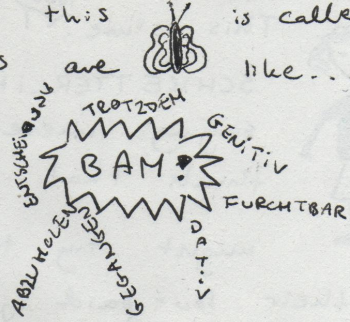 this is calle
s are like...
TROTZDEM
GENITIV
ENTSCHEIDUNG
BAM!
FURCHTBAR
ABZUHOLEN
GEGANGEN
DATIV